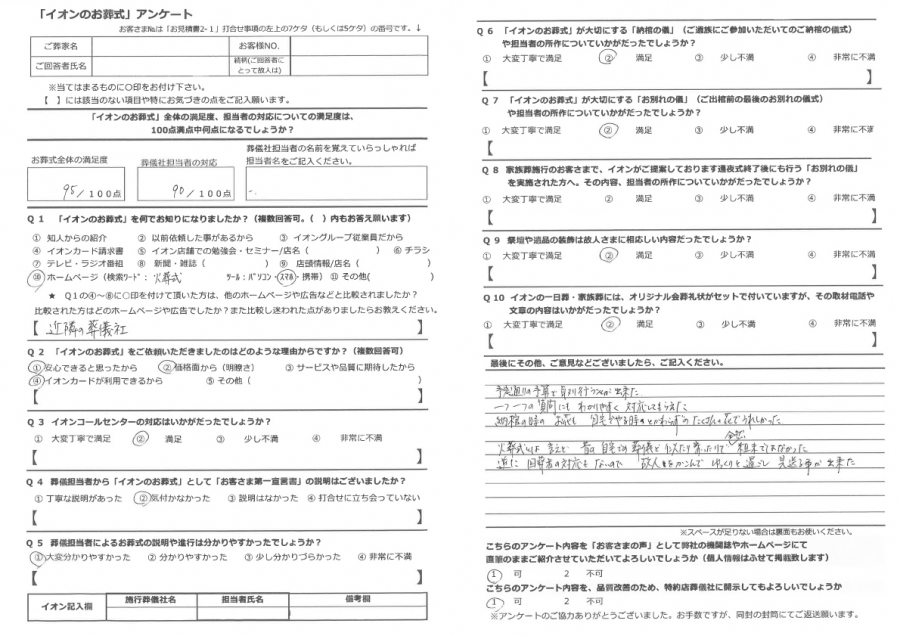 「イオンのお葬式」アンケート
お客さま№は「お見積書2-1」打合せ事項の左上の7ケタ（もしくは5ケタ）の番号です。↓
ご葬家名 お客様NO.
ご回答者氏名 続柄(ご回答者にとって故人は)
※当てはまるものに○印をお付け下さい。
【 】には該当のない項目や特にお気づきの点をご記入願います。
「イオンのお葬式」全体の満足度、担当者の対応についての満足度は、
100点満点中何点になるでしょうか？
お葬式全体の満足度 葬儀社担当者の対応 葬儀社担当者の名前を覚えていらっしゃれば
担当者名をご記入ください。
95/100点 90/100点
Q1 「イオンのお葬式」を何でお知りになりましたか？（複数回答可。( ) 内もお答え願います）
① 知人からの紹介 ② 以前依頼した事があるから ③ イオングループ従業員だから
④ イオンカード請求書 ⑤ イオン店舗での勉強会・セミナー/店名（ ） ⑥ チラシ
⑦ テレビ・ラジオ番組 ⑧ 新聞・雑誌（ ） ⑨ 店頭情報/店名（ ）
⑩ ホームページ（検索ワード： 火葬式 ツール：パソコン・スマホ・携帯）⑪ その他( )
★ Q1の④～⑩に○印を付けて頂いた方は、他のホームページや広告などと比較されましたか？
比較された方はどのホームページや広告でしたか？また比較し迷われた点がありましたらお教えください。
【 近隣の葬儀社 】
Q2 「イオンのお葬式」をご依頼いただきましたのはどのような理由からですか？（複数回答可）
①安心できると思ったから ②価格面から（明瞭さ） ③ サービスや品質に期待したから
④イオンカードが利用できるから ⑤ その他（ ）
【 】
Q3 イオンコールセンターの対応はいかがだったでしょうか？
① 大変丁寧で満足 ② 満足 ③ 少し不満 ④ 非常に不満
【 】
Q4 葬儀担当者から「イオンのお葬式」として「お客さま第一宣言書」の説明はございましたか？
① 丁寧な説明があった ②気付かなかった ③ 説明はなかった ④ 打合せに立ち会っていない
【 】
Q5 葬儀担当者によるお葬式の説明や進行は分かりやすかったでしょうか？
①大変分かりやすかった ② 分かりやすかった ③ 少し分かりづらかった ④ 非常に不満
【 】
イオン記入欄 施行葬儀社名 担当者氏名 備考欄
Q6 「イオンのお葬式」が大切にする「納棺の儀」（ご遺族にご参加いただいてのご納棺の儀式）
や担当者の所作についていかがだったでしょうか？
① 大変丁寧で満足 ② 満足 ③ 少し不満 ④ 非常に不満
【 】
Q7 「イオンのお葬式」が大切にする「お別れの儀」（ご出棺前の最後のお別れの儀式）
や担当者の所作についていかがだったでしょうか？
① 大変丁寧で満足 ② 満足 ③ 少し不満 ④ 非常に不満
【
Q8 家族葬施行のお客さまで、イオンがご提案しております通夜式終了後にも行う「お別れの儀」
を実施された方へ。その内容、担当者の所作についていかがだったでしょうか？
① 大変丁寧で満足 ② 満足 ③ 少し不満 ④ 非常に不満
【 】
Q9 祭壇や遺品の装飾は故人さまに相応しい内容だったでしょうか？
① 大変丁寧で満足 ② 満足 ③ 少し不満 ④ 非常に不満
【 】
Q10 イオンの一日葬・家族葬には、オリジナル会葬礼状がセットで付いていますが、その取材電話や
文章の内容はいかがだったでしょうか？
① 大変丁寧で満足 ② 満足 ③ 少し不満 ④ 非常に不満
【 】
最後にその他、ご意見などございましたら、ご記入ください。
予定通りの予算で 出来た
一つ一つの質問にも わかりやすく 対応してもらえた
納棺の時の お花も たくさんの花でうれしかった
火葬式とは言えど 昔の自宅での葬儀と 全然 粗末ではなかった
逆に 回答者の対応もないので 故人を ゆっくりと過ごし 見送る事が出来た
※スペースが足りない場合は裏面もお使いください。
こちらのアンケート内容を「お客さまの声」として弊社の機関誌やホームページにて
直筆のままご紹介させていただいてよろしいでしょうか（個人情報はふせて掲載致します）
1 可 2 不可
こちらのアンケート内容を、品質改善のため、特約店葬儀社に開示してもよろしいでしょうか
1 可 2 不可
※アンケートのご協力ありがとうございました。お手数ですが、同封の封筒にてご返送願います。